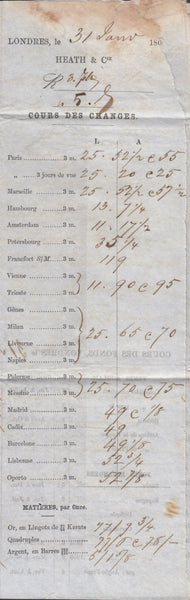 LONDRES, le 31 Janv 186
HEATH & Cie
R
5.
COURS DES CHANGES.
L A
Paris 3 m. 25. 52 1/2 c 55
„ 3 jours de vue 25. 20 c 25
Marseille 3 m. 25. 52 1/2 c 57 1/2
Hambourg 3 m. 13. 7 1/4
Amsterdam 3 m. 11. 17 1/2
Pétersbourg 3 m. 35 1/4
Francfort S/M. 3 m. 119
Vienne 3 m.
Trieste 3 m. 11. 90 c 95
Gênes 3 m.
Milan 3 m.
Livourne 3 m. 25. 65 c 70
Naples 3 m.
Palerme 3 m.
Messine 3 m. 25. 70 c 75
Madrid 3 m. 49 c 1/8
Cadix 3 m. 49
Barcelone 3 m. 49 1/8
Lisbonne 3 m. 52 3/4
Oporto 3 m. 52 7/8
MATIÈRES, par Once.
Or, en Lingots de Karats 77/9 3/4
Quadruples
Argent, en Barres